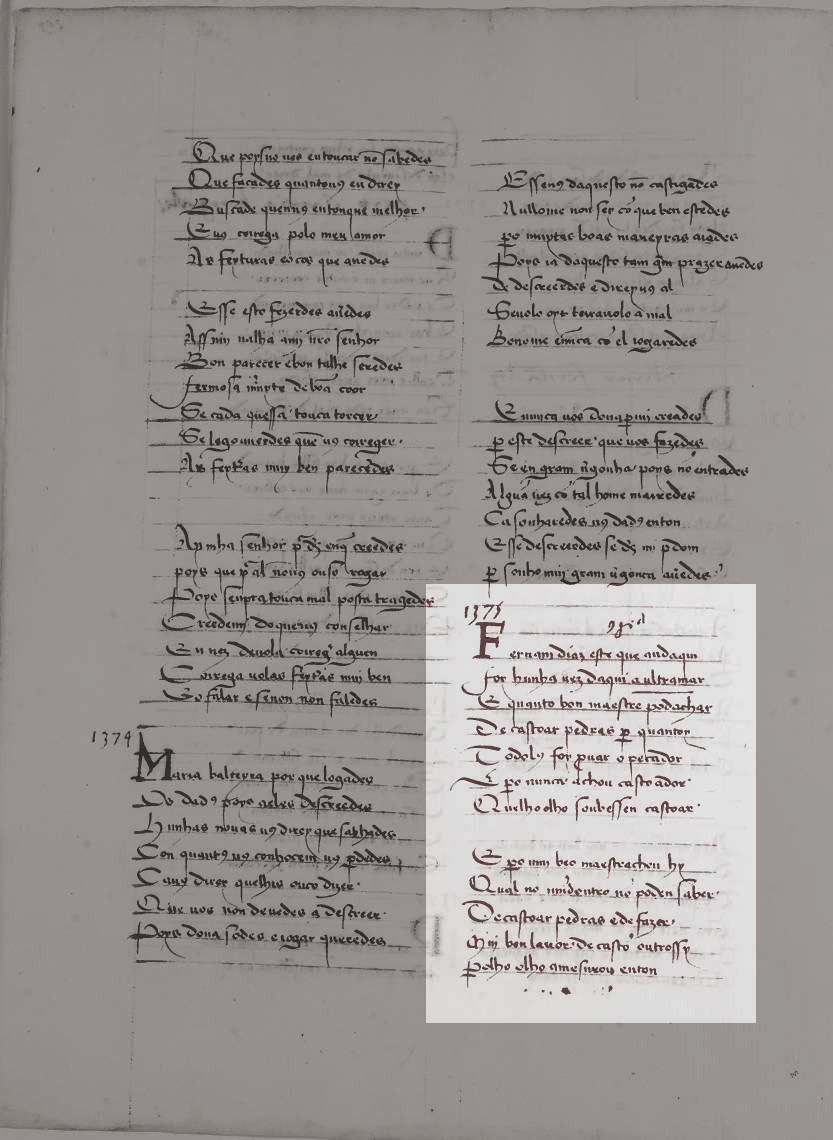 Que porsuo uos entoucar nō sabedes
Que facades quantouꝯ eu direy
Buscade quenuꝯ entouque melhor
E uꝯ correga polo meu amor
As feyturas eo cos que auedes
E sse esto fezerdes auedes
Assy mi ualha amj nr̄o senhor
Bon parecer ebon talhe seredes
fremosa mujte de bōa coor
Se cada quessa touca torcer
Se logo ouuerdes quē uꝯ correger
As feyturas muy ben parecedes
Ay mha senhor
poys que
Poys senpra touca mal posta tragedes
Creedemj do queuꝯ conselhar
E n uez deuola coireg' alguen
Coirega uolas feyturas mui ben
E o falar e senon non faledes
1374
Maria balteyra por que logades
Os dadꝯ poys aeles descreedes
Hunhas nouas uꝯ direy que sabhades
Con quantꝯ uꝯ conhocem uꝯ perdedes
Ca uy dizer quelhis ouço dizer
Que uos non deuedes a descreer
Poys dona sodes e iogar queredes
E ssenꝯ daquesto nō castigades
Nullome non sey cō que ben estedes
ꝑo muytas boas maneyras aiades
Poys ia daquesto tam gm̄ prazer auedes
De descreerdes e direyuꝯ al
Se uolo oyr terraruolo a mal
Bonome
E nunca uos dona per mi creades
ꝑ este descreer que uos fazedes
Se en gram ūgonha poys nō entrades
Algūa uez cō tal home marredes
Ca sonharedes nꝯ dadꝯ enton
E sse descreerdes se dꝫ mi ꝑdom
ꝑ sonho muy gram ūgonça auedes
1375
Fernam diaz este que andaqui
foy hunha uez daqui a ultramar
E quanto bon maestre podachar
De castoar pedras ꝑ quantoy
Todolꝯ foy ꝓuar o pecador
E ꝑo nunca achou castoador
Quelho olho soubessen castoar
E ꝑo mui beo maestrachou hy
Qual no mūdentro nō poden saber
De castoar pedras e de fazer
Muj bon lauor de casto outrossy
Pelho olho amesurou enton